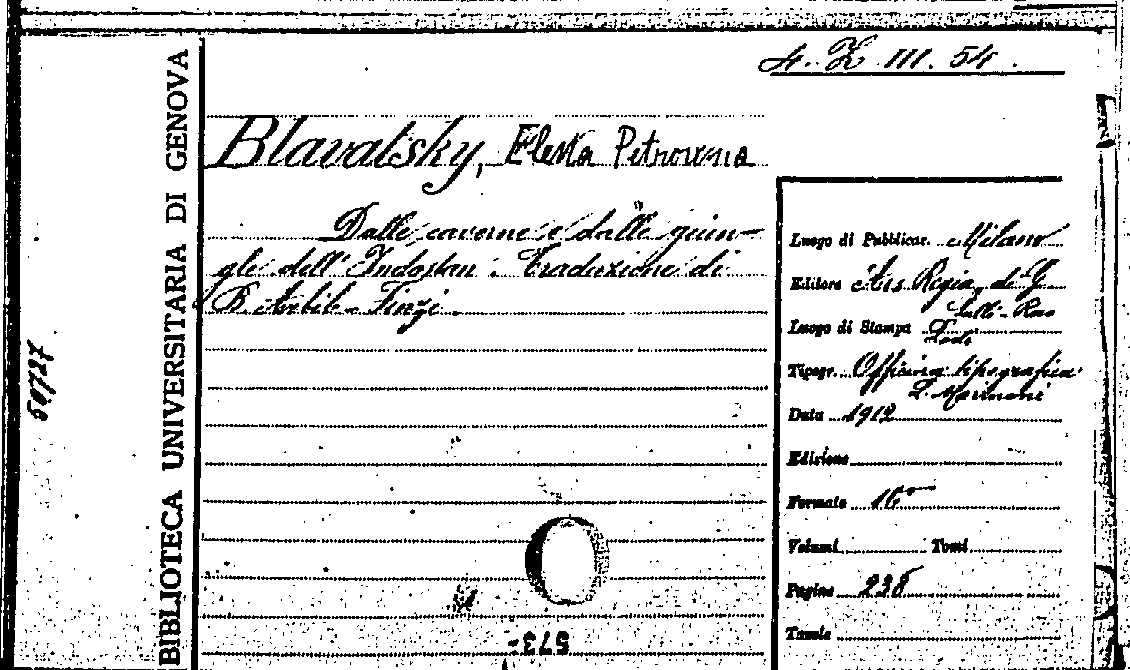 4. Z. III. 54.
BIBLIOTECA UNIVERSITARIA DI GENOVA
50727
Blavatsky, Elena Petrovna
Dalle caverne e dalle giun-
gle dell'Indostan. Traduzione di
B. Arbib-Finzi.
Luogo di Pubblicaz. Milano
Editore Ars Regia, di G.
Sulli-Rao
Luogo di Stampa Lodi
Tipogr. Officina tipografica
L. Marinoni
Data 1912
Edizione
Formato 16°
Volumi Tomi
Pagine 238
Tavole
573-